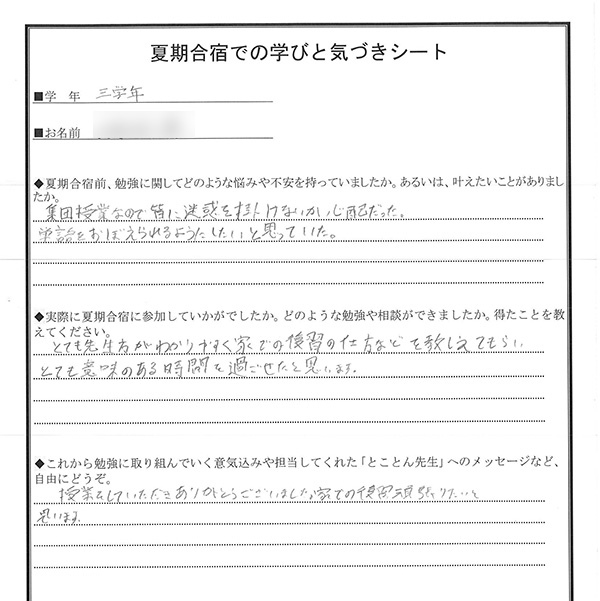 夏期合宿での学びと気づきシート
■学　年　三学年
■お名前
◆夏期合宿前、勉強に関してどのような悩みや不安を持っていましたか。あるいは、叶えたいことがありまし
たか。
集団授業なので皆に迷惑を掛けないか心配だった。
単語をおぼえられるようにしたいと思っていた。
◆実際に夏期合宿に参加していかがでしたか。どのような勉強や相談ができましたか。得たことを教
えてください。
とても先生方がわかりやすく家での復習の仕方などを教しえてもらい
とても意味のある時間を過ごせたと思います。
◆これから勉強に取り組んでいく意気込みや担当してくれた「とことん先生」へのメッセージなど、
自由にどうぞ。
授業をしていただきありがとうございました家での復習頑張りたいと
思います。